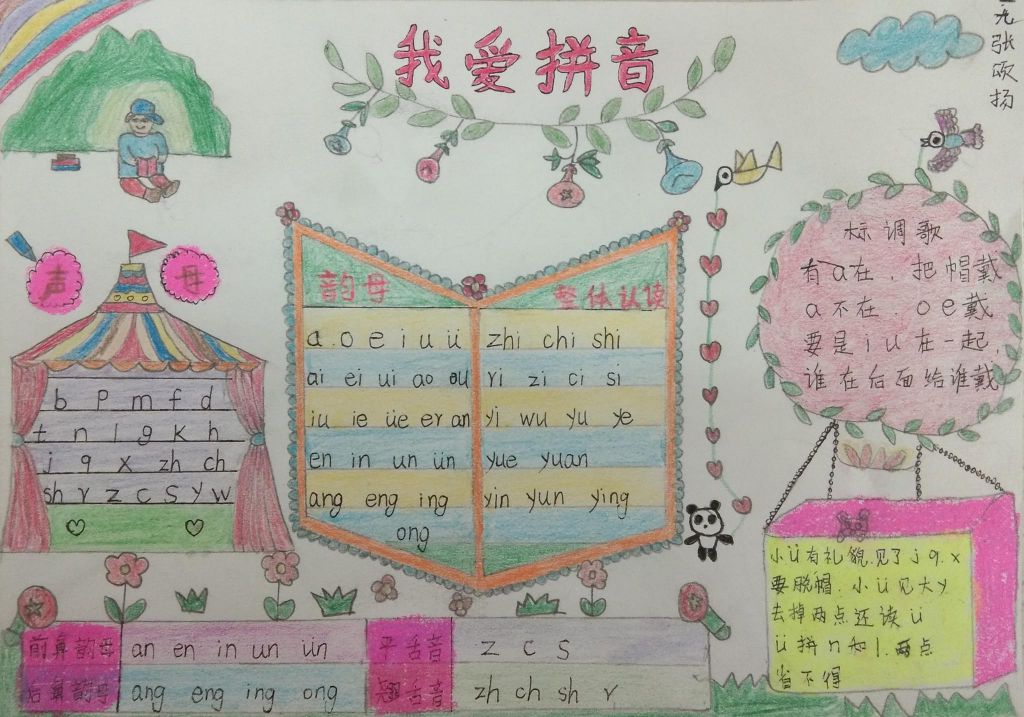 我爱拼音
张颂扬
声母
b p m f d
t n l g k h
j q x zh ch
sh r z c s y w
韵母
a o e i u ü
ai ei ui ao ou
iu ie üe er an
en in un ün
ang eng ing
ong
整体认读
zhi chi shi
ri zi ci si
yi wu yu ye
yue yuan
yin yun ying
标调歌
有a在.把帽戴
a不在.oe戴
要是iu在一起,
谁在后面给谁戴
小ü有礼貌.见了jq.x
要脱帽.小ü见大y
去掉两点还读ü
ü拼n和l.两点
省不得
前鼻韵母 an en in un ün
后鼻韵母 ang eng ing ong
平舌音 z c s
翘舌音 zh ch sh r